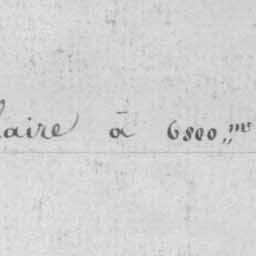 laire à 6800,,mr